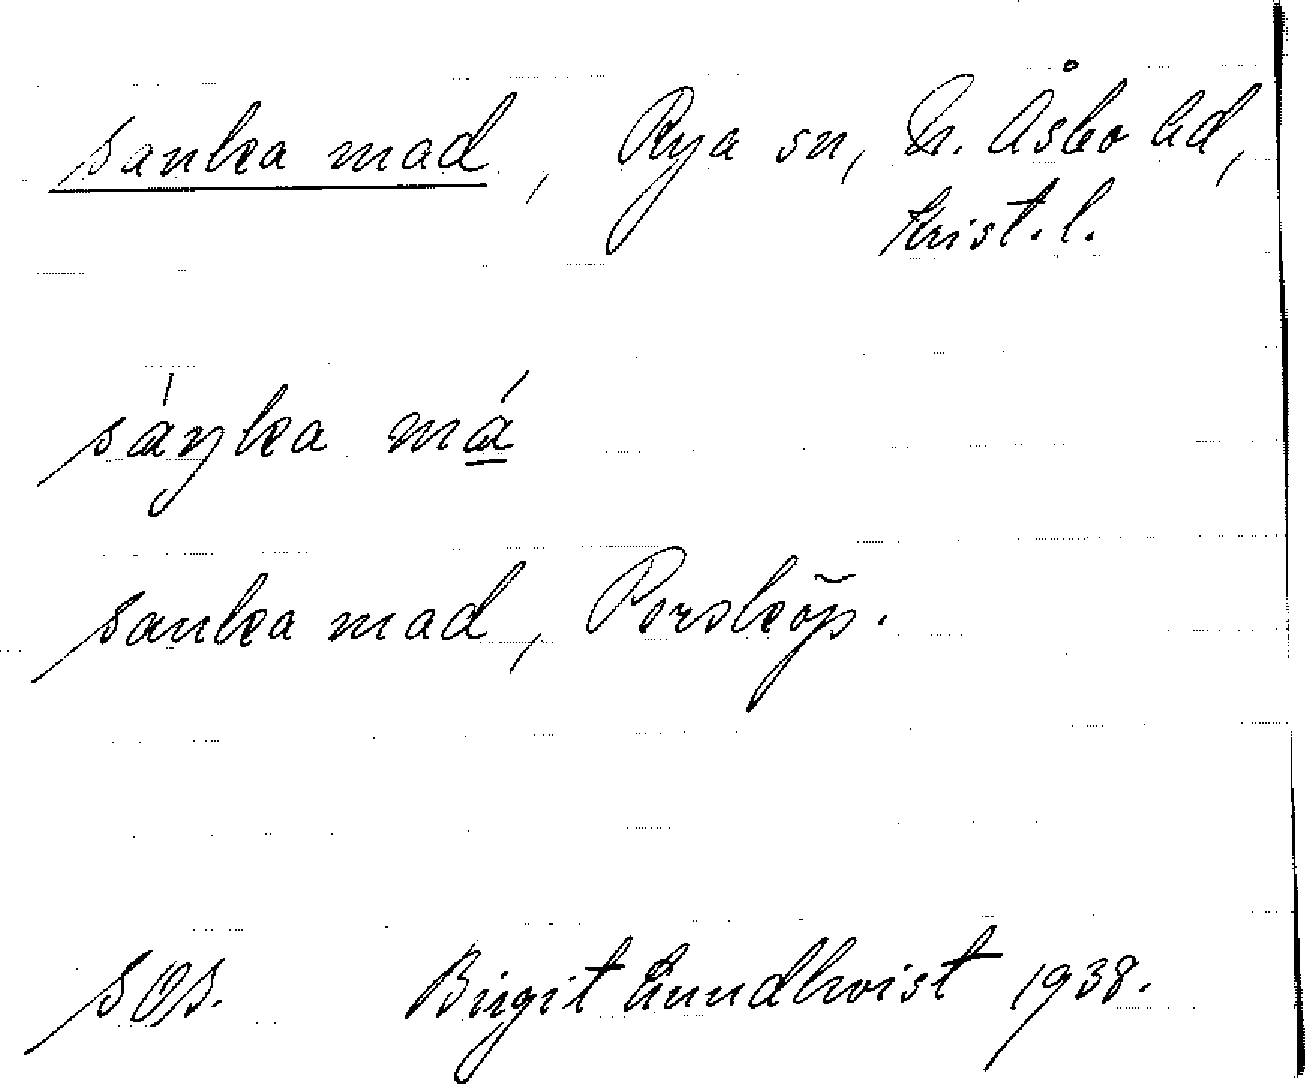 sanka mad, Rya sn, N. Åsbo hd,
Krist. l.
sáŋka má
sanka mad, Persköp.
SOS. Birgit Lundkvist 1938.